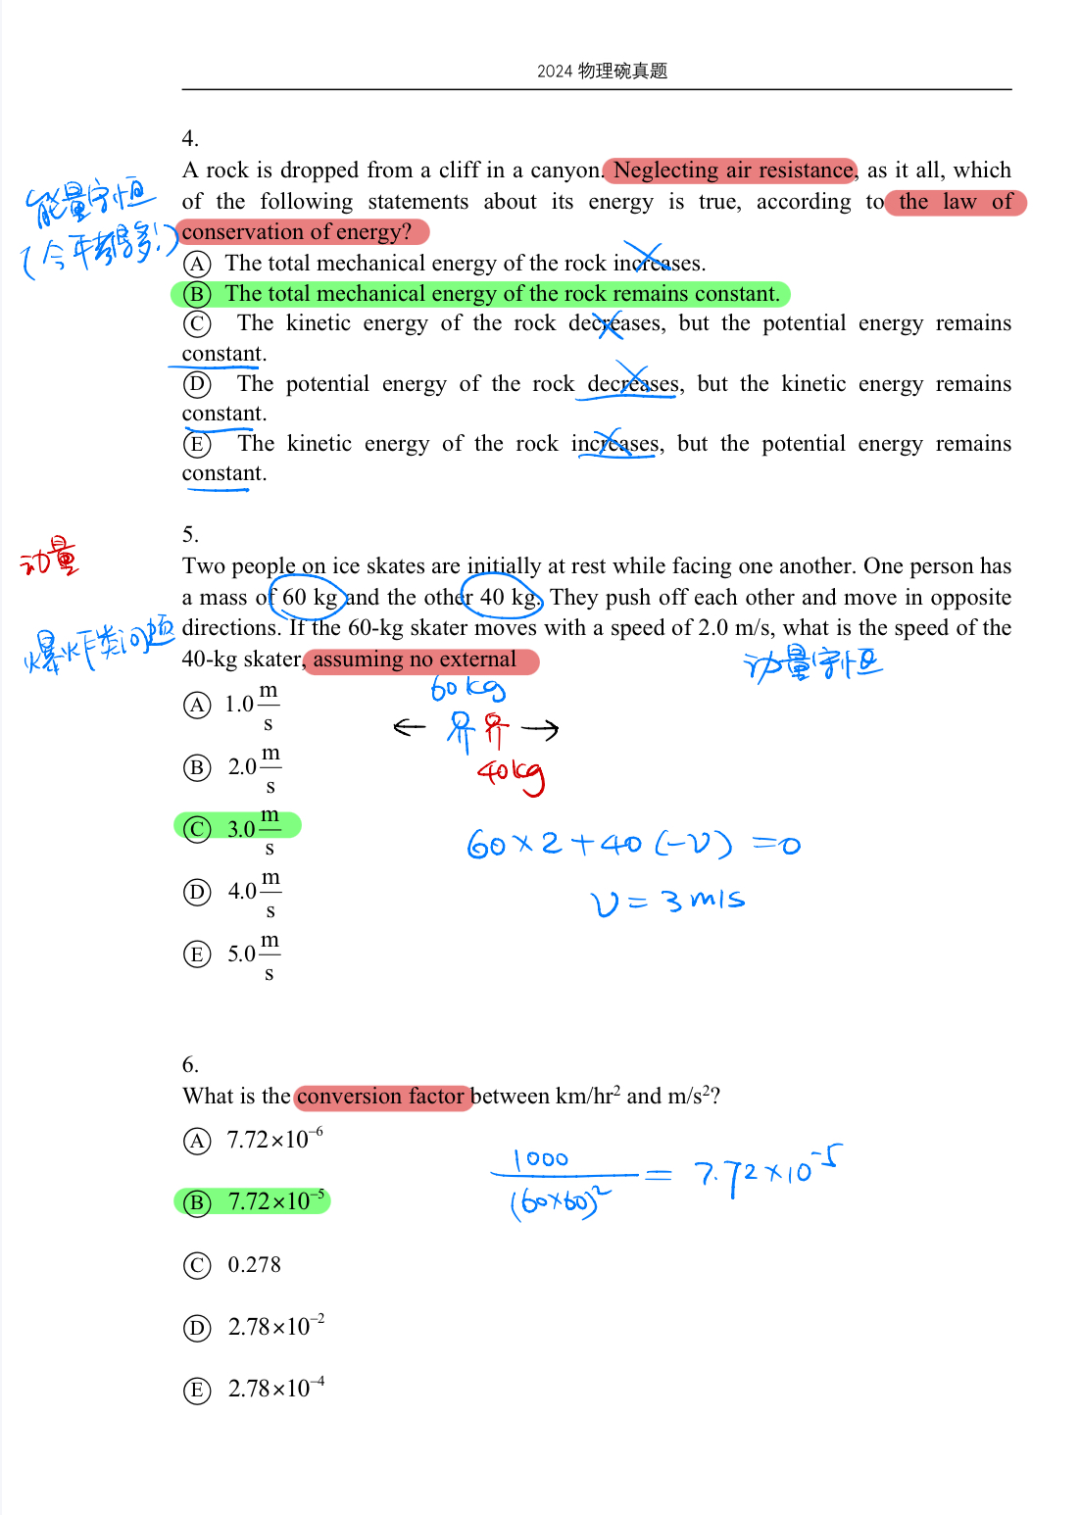 2024 物理碗真题
4.
A rock is dropped from a cliff in a canyon. Neglecting air resistance, as it all, which
of the following statements about its energy is true, according to the law of
conservation of energy?
能量守恒
(今年考得多!)
Ⓐ The total mechanical energy of the rock increases.
Ⓑ The total mechanical energy of the rock remains constant.
Ⓒ The kinetic energy of the rock decreases, but the potential energy remains
constant.
Ⓓ The potential energy of the rock decreases, but the kinetic energy remains
constant.
Ⓔ The kinetic energy of the rock increases, but the potential energy remains
constant.
5.
动量
Two people on ice skates are initially at rest while facing one another. One person has
a mass of 60 kg and the other 40 kg. They push off each other and move in opposite
爆炸类问题
directions. If the 60-kg skater moves with a speed of 2.0 m/s, what is the speed of the
40-kg skater, assuming no external
动量守恒
60kg
40kg
Ⓐ 1.0 m/s
Ⓑ 2.0 m/s
Ⓒ 3.0 m/s
60×2+40(-v)=0
v=3m/s
Ⓓ 4.0 m/s
Ⓔ 5.0 m/s
6.
What is the conversion factor between km/hr² and m/s²?
Ⓐ 7.72×10⁻⁶
1000/(60×60)² = 7.72×10⁻⁵
Ⓑ 7.72×10⁻⁵
Ⓒ 0.278
Ⓓ 2.78×10⁻²
Ⓔ 2.78×10⁻⁴